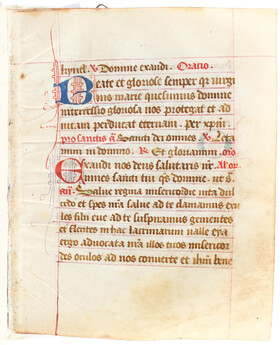 kyriel. V Domine exaudi. Oratio.
Beate et gloriose semper qs virgi
nis marie quesumus domine
intercessio gloriosa nos protegat et ad
vitam perducat eternam. Per xpm
pro sanctis a Sancti dei omnes V Leta
mini in domino. R Et gloriamini. oro
Exaudi nos deus salutaris nr
omnes sancti tui qs domine. ut s.
an. Salve regina misericordie vita dul
cedo et spes nra salve ad te clamamus exu
les filii eve ad te suspiramus gementes
et flentes in hac lacrimarum valle eya
ergo advocata nra illos tuos misericor
des oculos ad nos converte et ihm bene